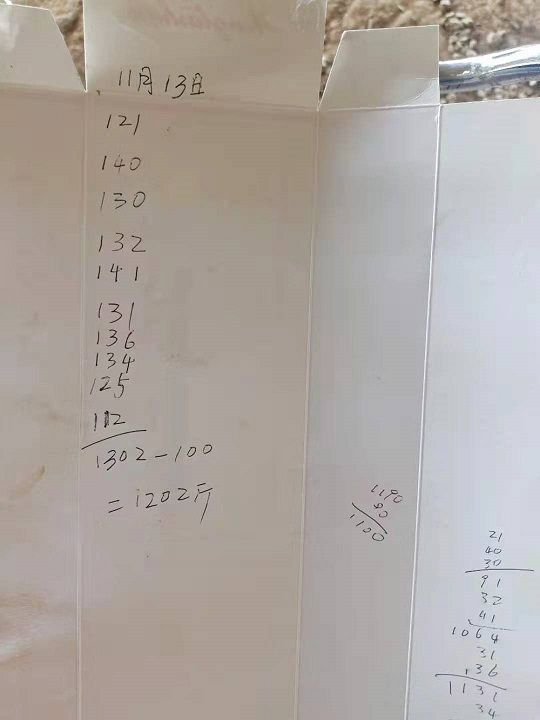 11月13日
121
140
130
132
141
131
136
134
125
112
1302-100
=1202斤
1190
90
1100
21
40
30
91
32
41
1064
31
136
1131
34